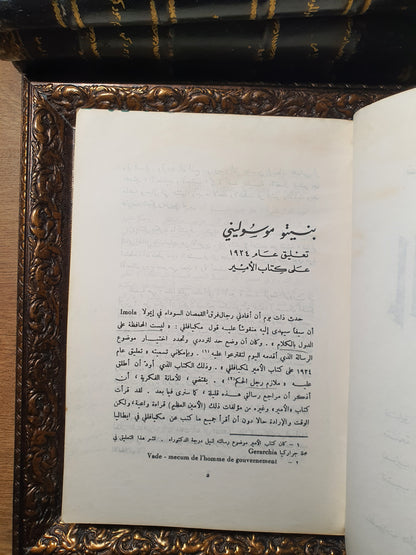 بنيتو موسوليني
تعليق عام ١٩٢٤
على كتاب الأمير
حدث ذات يوم أن أفادني رجال فرق القمصان السوداء في إيمولا Imola
أن سيفا سيهدى إليه منقوشاً عليه قول مكيافللي : « ليست المحافظة على
الدول بالكلام » . وكان أن وضع حد لترددي وتحدد اختيار موضوع
الرسالة الذي أقدمه اليوم لتقترعوا عليه (١) . وبإمكاني تسميته « تعليق عام
١٩٢٤ على كتاب الأمير لمكيافللي » . وذلك الكتاب الذي أود أن أطلق
عليه « ملازم رجل الحكم (٢) » . يقتضي ، للأمانة الفكرية ، أن
أذكر أن مراجع رسالتي هذه قليلة ، كما سنرى فيما بعد . لقد قرأت
كتاب « الأمير » وغيره من مؤلفات ذلك ( الأمين العظيم ) قراءة واعية، ولكن
الوقت والإرادة حالا دون أن أقرأ جميع ما كتب عن مكيافللي في ايطاليا
١ – كان كتاب الأمير موضوع رسالته لنيل درجة الدكتوراه . نشر هذا التعليق في
مجلة جراركيا Gerarchia
٢ – Vade - mecum de l'homme de gouvernement